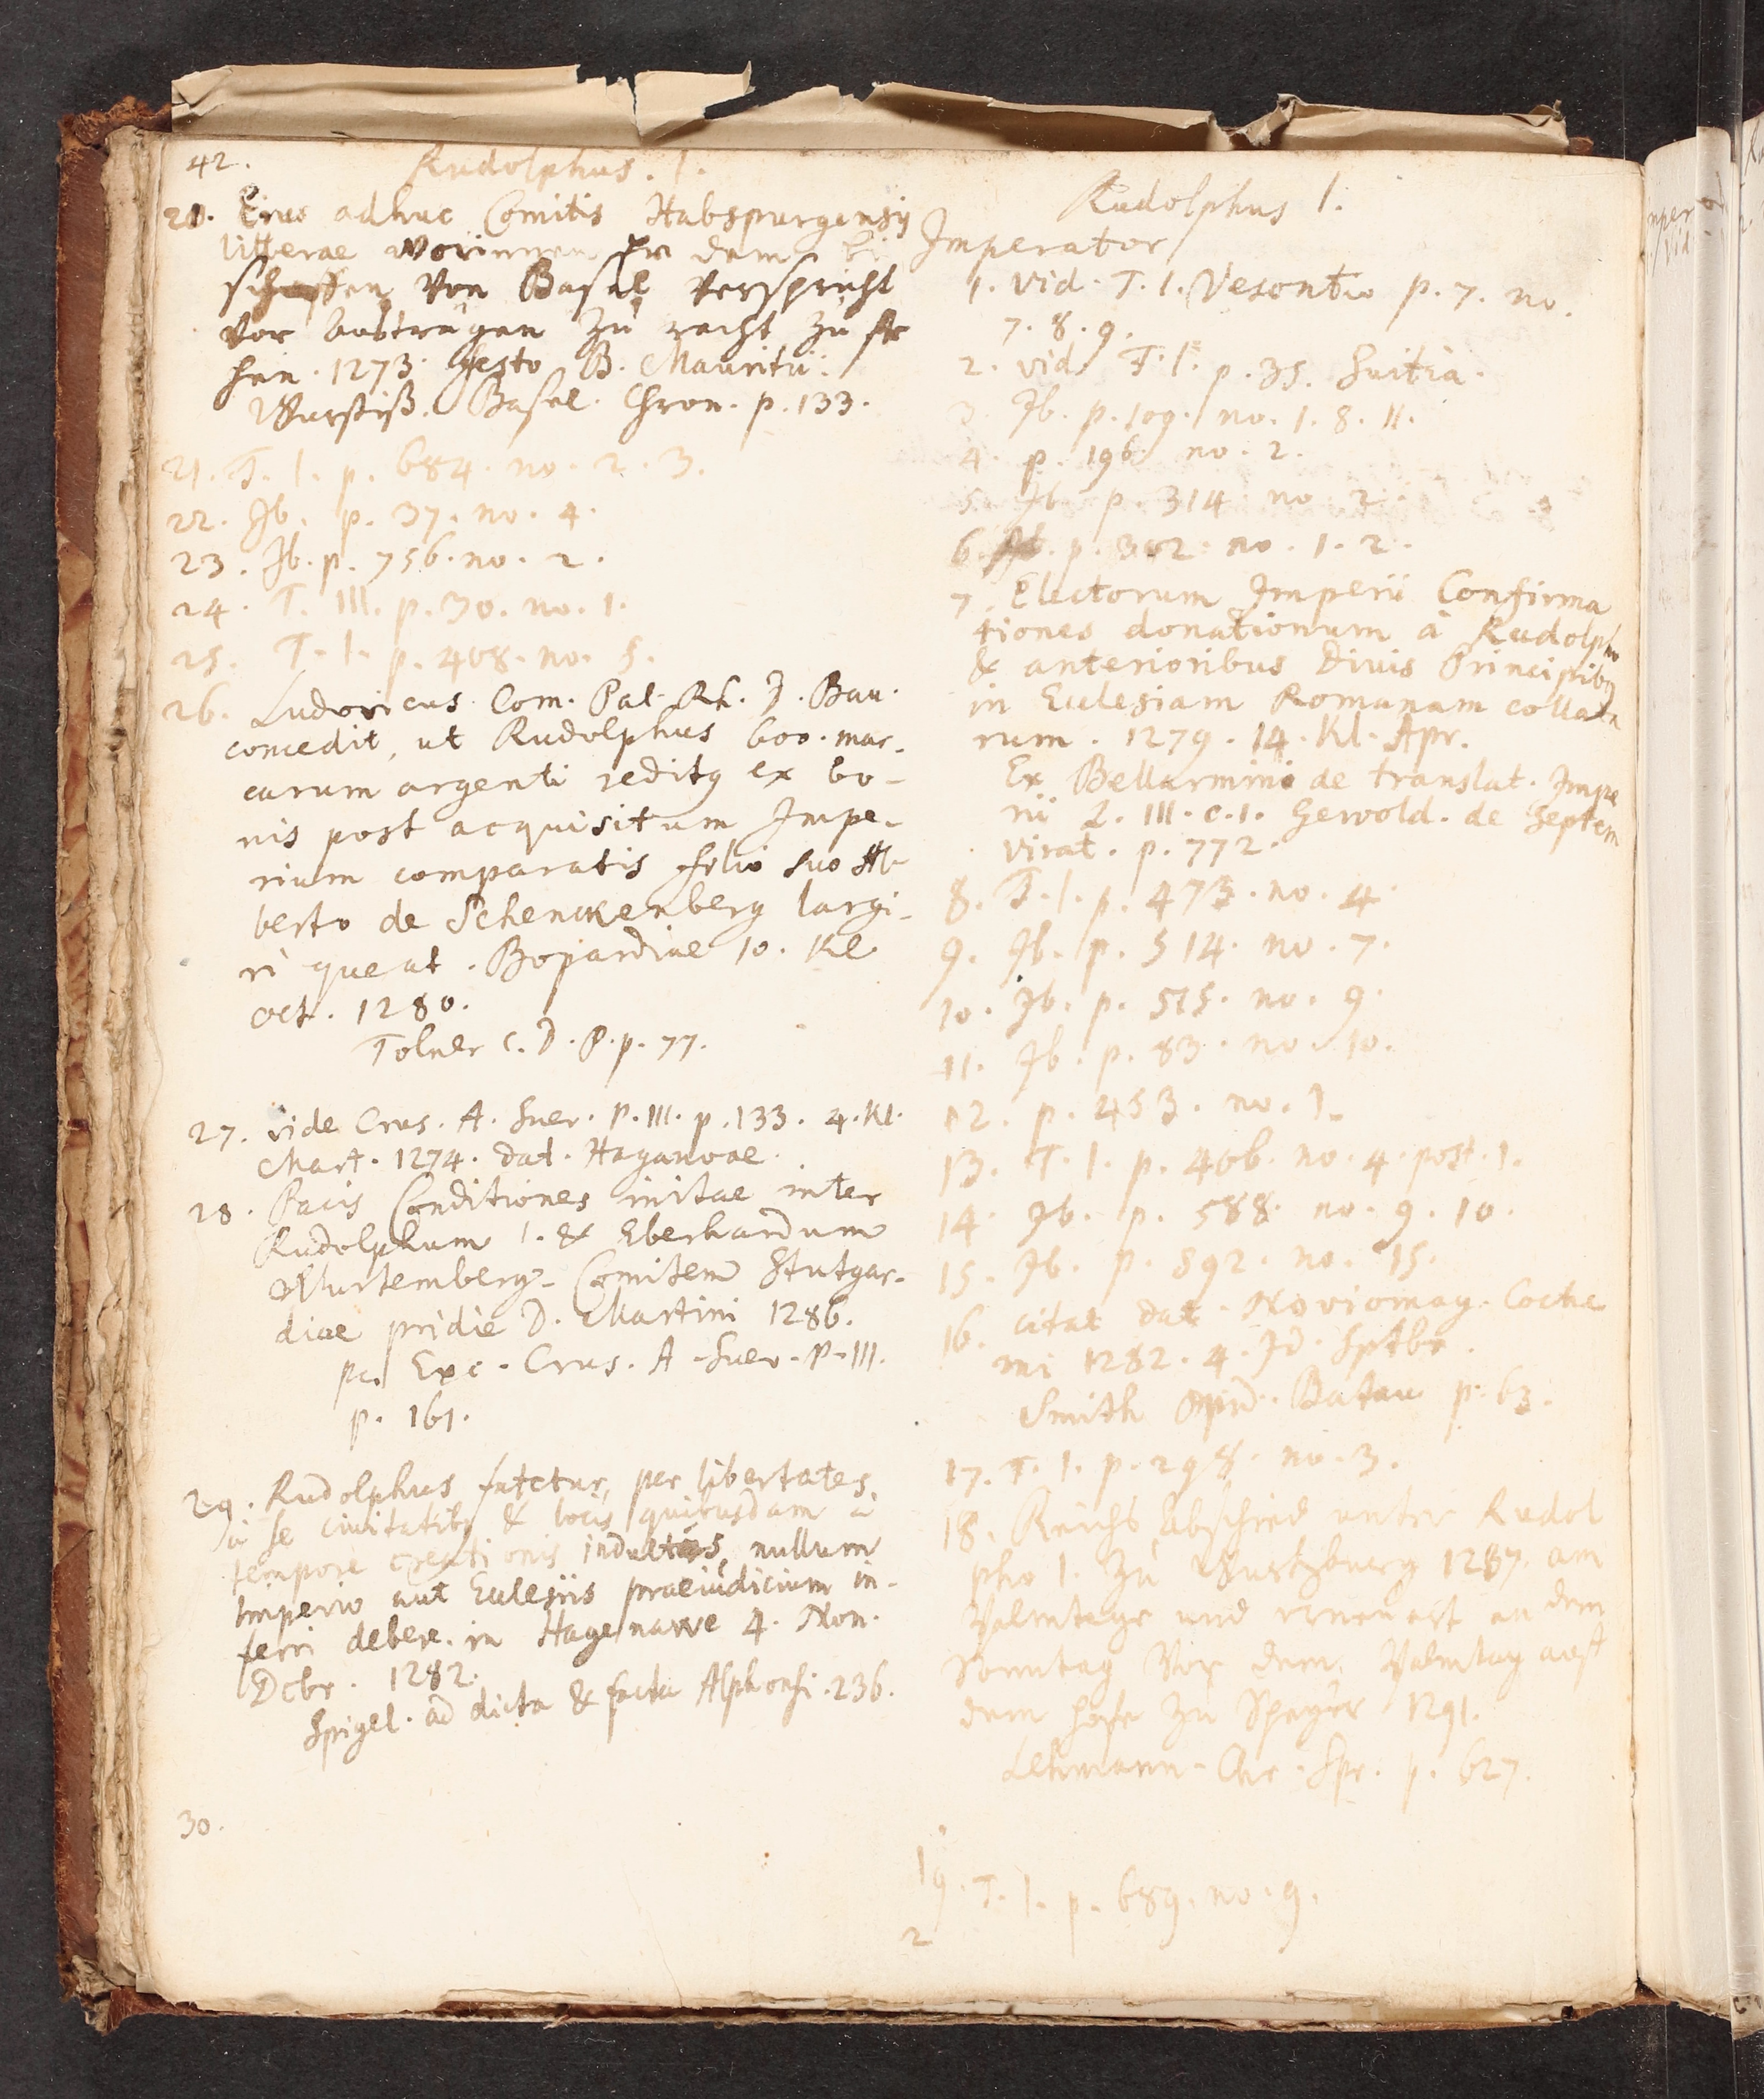 42.
Rudolphus. I.
20. Eius adhuc Comitis Habspurgensis
litterae worinnen Er dem bi
schoffen von Basel verspricht
vor austrägen zu recht zu ste
hen. 1273. festo B. Mauritii.
Wurstiß. Basel. Chron. p. 133.
21. T. I. p. 684. no. 2. 3.
22. Ib. p. 37. no. 4.
23. Ib. p. 756. no. 2.
24. T. III. p. 30. no. 1.
25. T. I. p. 468. no. 5.
26. Ludovicus Com. Pal. Rh. D. Bau.
concedit, ut Rudolphus 600. mar-
carum argenti reditq ex bo-
nis post acquisitum Impe-
rium comparatis filio suo Al-
berto de Schenckenberg largi-
ri queat. Bopardiae 10. Kl
Oct. 1280.
Tolner C. D. P. p. 77.
27. vide Crus. A. Suev. P. III. p. 133. 4. Kl.
Mart. 1274. dat. Haganoae.
28. Pacis Conditiones initae inter
Rudolphum I. & Eberhardum
Wurtemberg. Comitem Stutgar-
diae pridie D. Martini 1286.
Exc. Crus. A. Suev. P. III.
p. 161.
29. Rudolphus fatetur, per libertates,
a se civitatibq & locis quibusdam a
tempore creationis indultas, nullum
Imperio aut Eclesiis praeiudicium in-
ferri debere. in Hagenawe 4. Non.
Dcbr. 1282.
Spigel. ad dicta & facta Alphonsi. 236.
30.
Rudolphus I.
Imperator
1. vid. T. I. Vesontio p. 7. no.
7. 8. 9.
2. vid. T. I. p. 35. Suitia.
3. Ib. p. 109. no. 1. 8. 11.
4. p. 196. no. 2.
5. Ib. p. 314 no 2.
6. Ib. p. 302. no. 1. 2.
7. Electorum Imperii Confirma
tiones donationum à Rudolpho
& anterioribus Divis Principibq
in Eclesiam Romanam collata
rum. 1279. 14. Kl. Apr.
Ex Bellarmino de translat. Impe
rii L. III. c. 1. Gewold. de Septem
virat. p. 772.
8. T. I. p. 473. no. 4
9. Ib. p. 514. no. 7.
10. Ib. p. 515. no. 9.
11. Ib. p. 83. no. 10.
12. p. 453. no. 1.
13. T. I. p. 406. no. 4. post. 1.
14. Ib. p. 588. no. 9. 10.
15. Ib. p. 892. no. 15.
16. citat dat. Noviomag. Coche
mi 1282. 4. Id. Sptbr.
Smith Opid. Batau p. 63.
17. T. I. p. 298. no. 3.
18. Reichs Abschied unter Rudol
pho I. zu Wurtzburg 1287. am
Palmtage und erneuert an dem
Sonntag vor dem Palmtag auf
dem hofe zu Speyer 1291.
Lehmann. Chr. Spr. p. 627.
19. T. I. p. 689. no. 9.
2